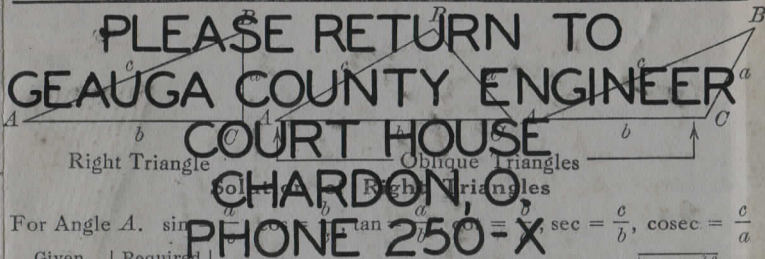 PLEASE RETURN TO
GEAUGA COUNTY ENGINEER
COURT HOUSE
CHARDON, O.
PHONE 250-X
B B B
c a c a c a
A b C A b C A b C
Right Triangle Oblique Triangles
Solution of Right Triangles
For Angle A. sin = a cos = b, tan = a, cot = b, sec = c/b, cosec = c/a
Given Required